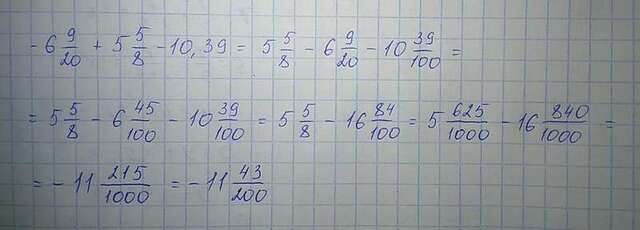 - 6 9/20 + 5 5/8 - 10,39 = 5 5/8 - 6 9/20 - 10 39/100 =
= 5 5/8 - 6 45/100 - 10 39/100 = 5 5/8 - 16 84/100 = 5 625/1000 - 16 840/1000 =
= - 11 215/1000 = - 11 43/200